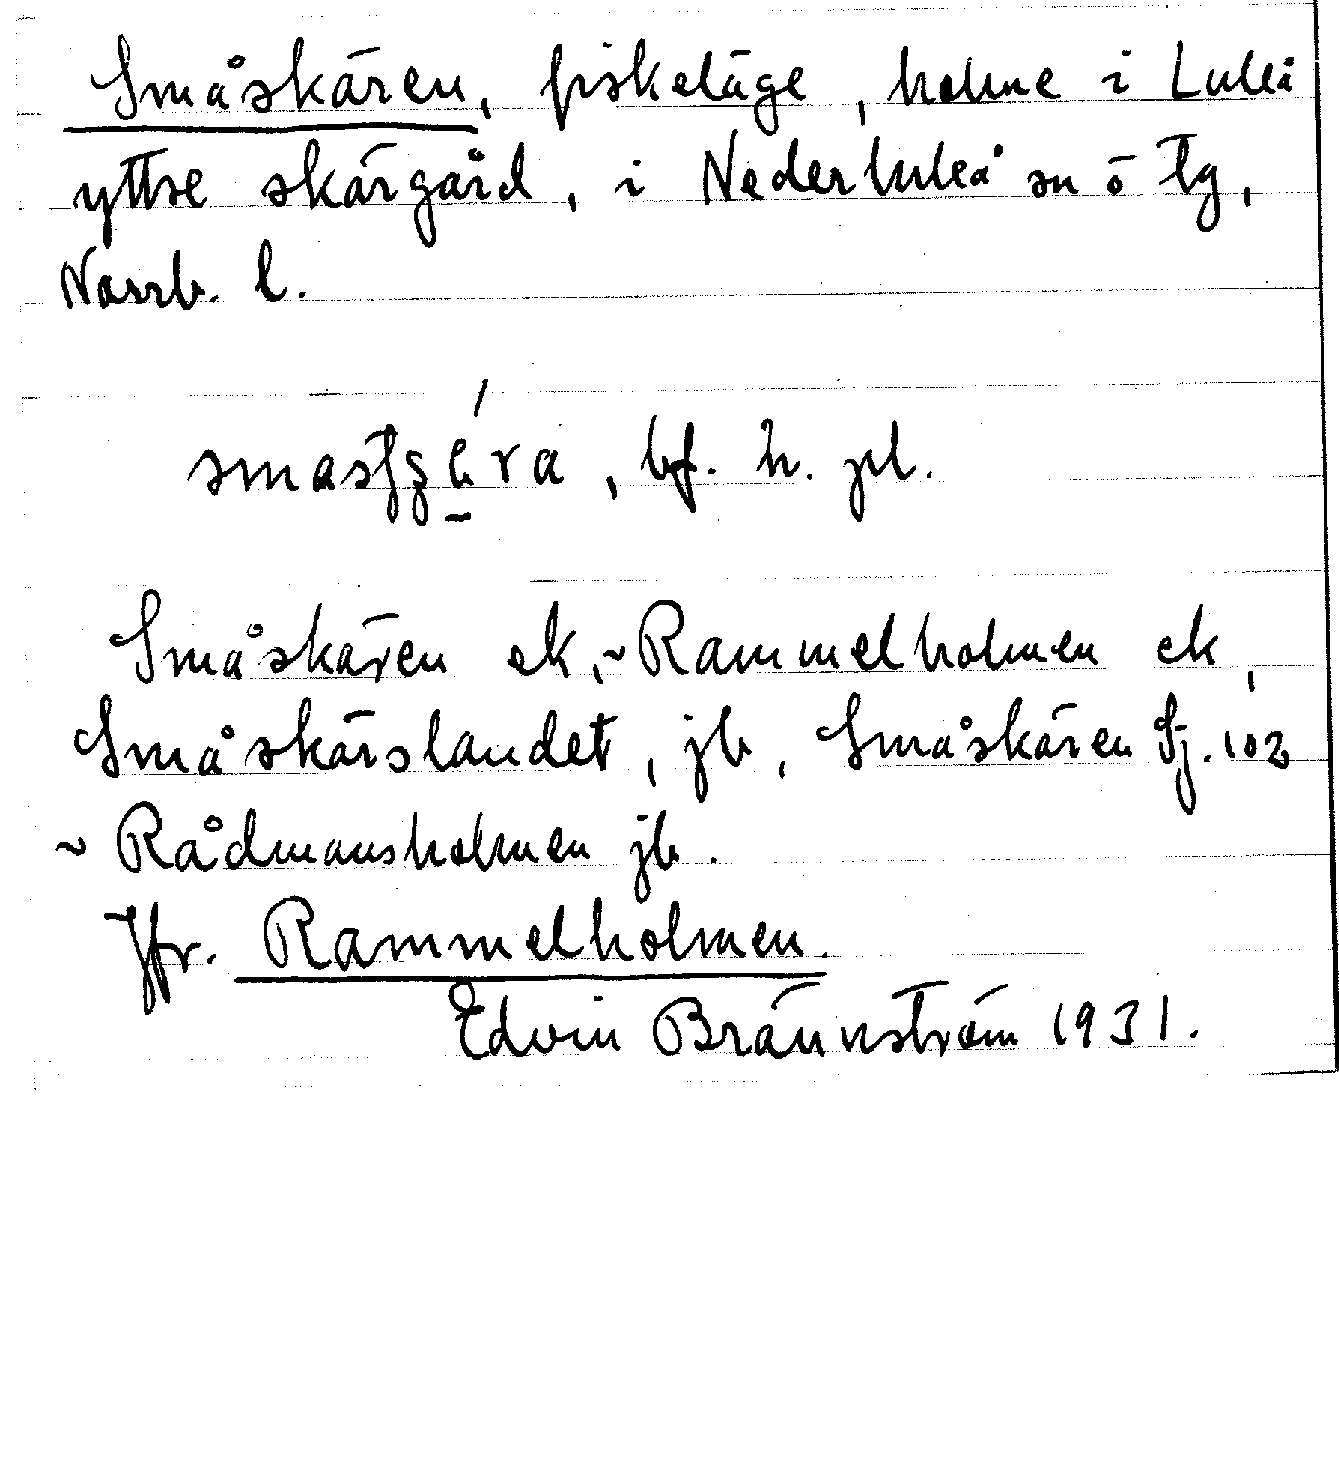 Småskären, fiskeläge, holme i Luleå
yttre skärgård, i Nederluleå sn ö tg,
Norrb. l.
bf. n. pl.
Småskären ek, ~ Rammelholmen ek,
Småskärslandet, jb, Småskären Sj. 102
~ Rådmansholmen jb.
Jfr. Rammelholmen.
Edvin Brännström 1931.